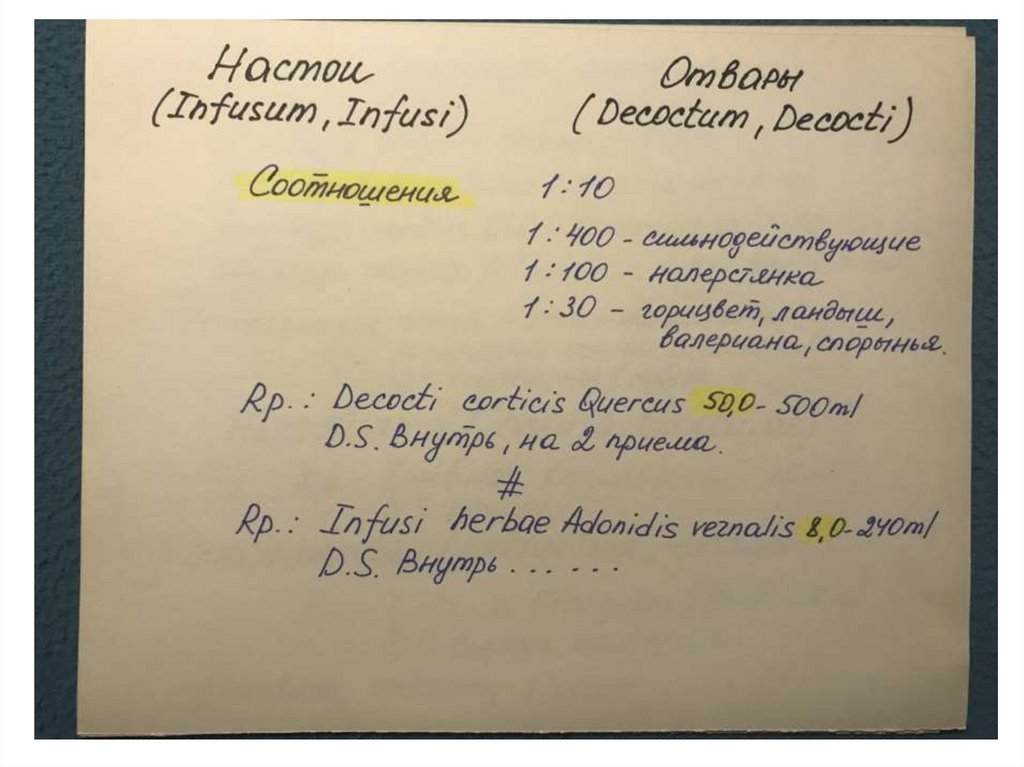 Настои
(Infusum, Infusi)
Отвары
(Decoctum, Decocti)
Соотношения 1:10
1:400 - сильнодействующие
1:100 - наперстянка
1:30 - горицвет, ландыш,
валериана, спорынья.
Rp.: Decocti corticis Quercus 50,0 - 500ml
D.S. Внутрь, на 2 приема.
#
Rp.: Infusi herbae Adonidis vernalis 8,0 - 240ml
D.S. Внутрь . . . . . .